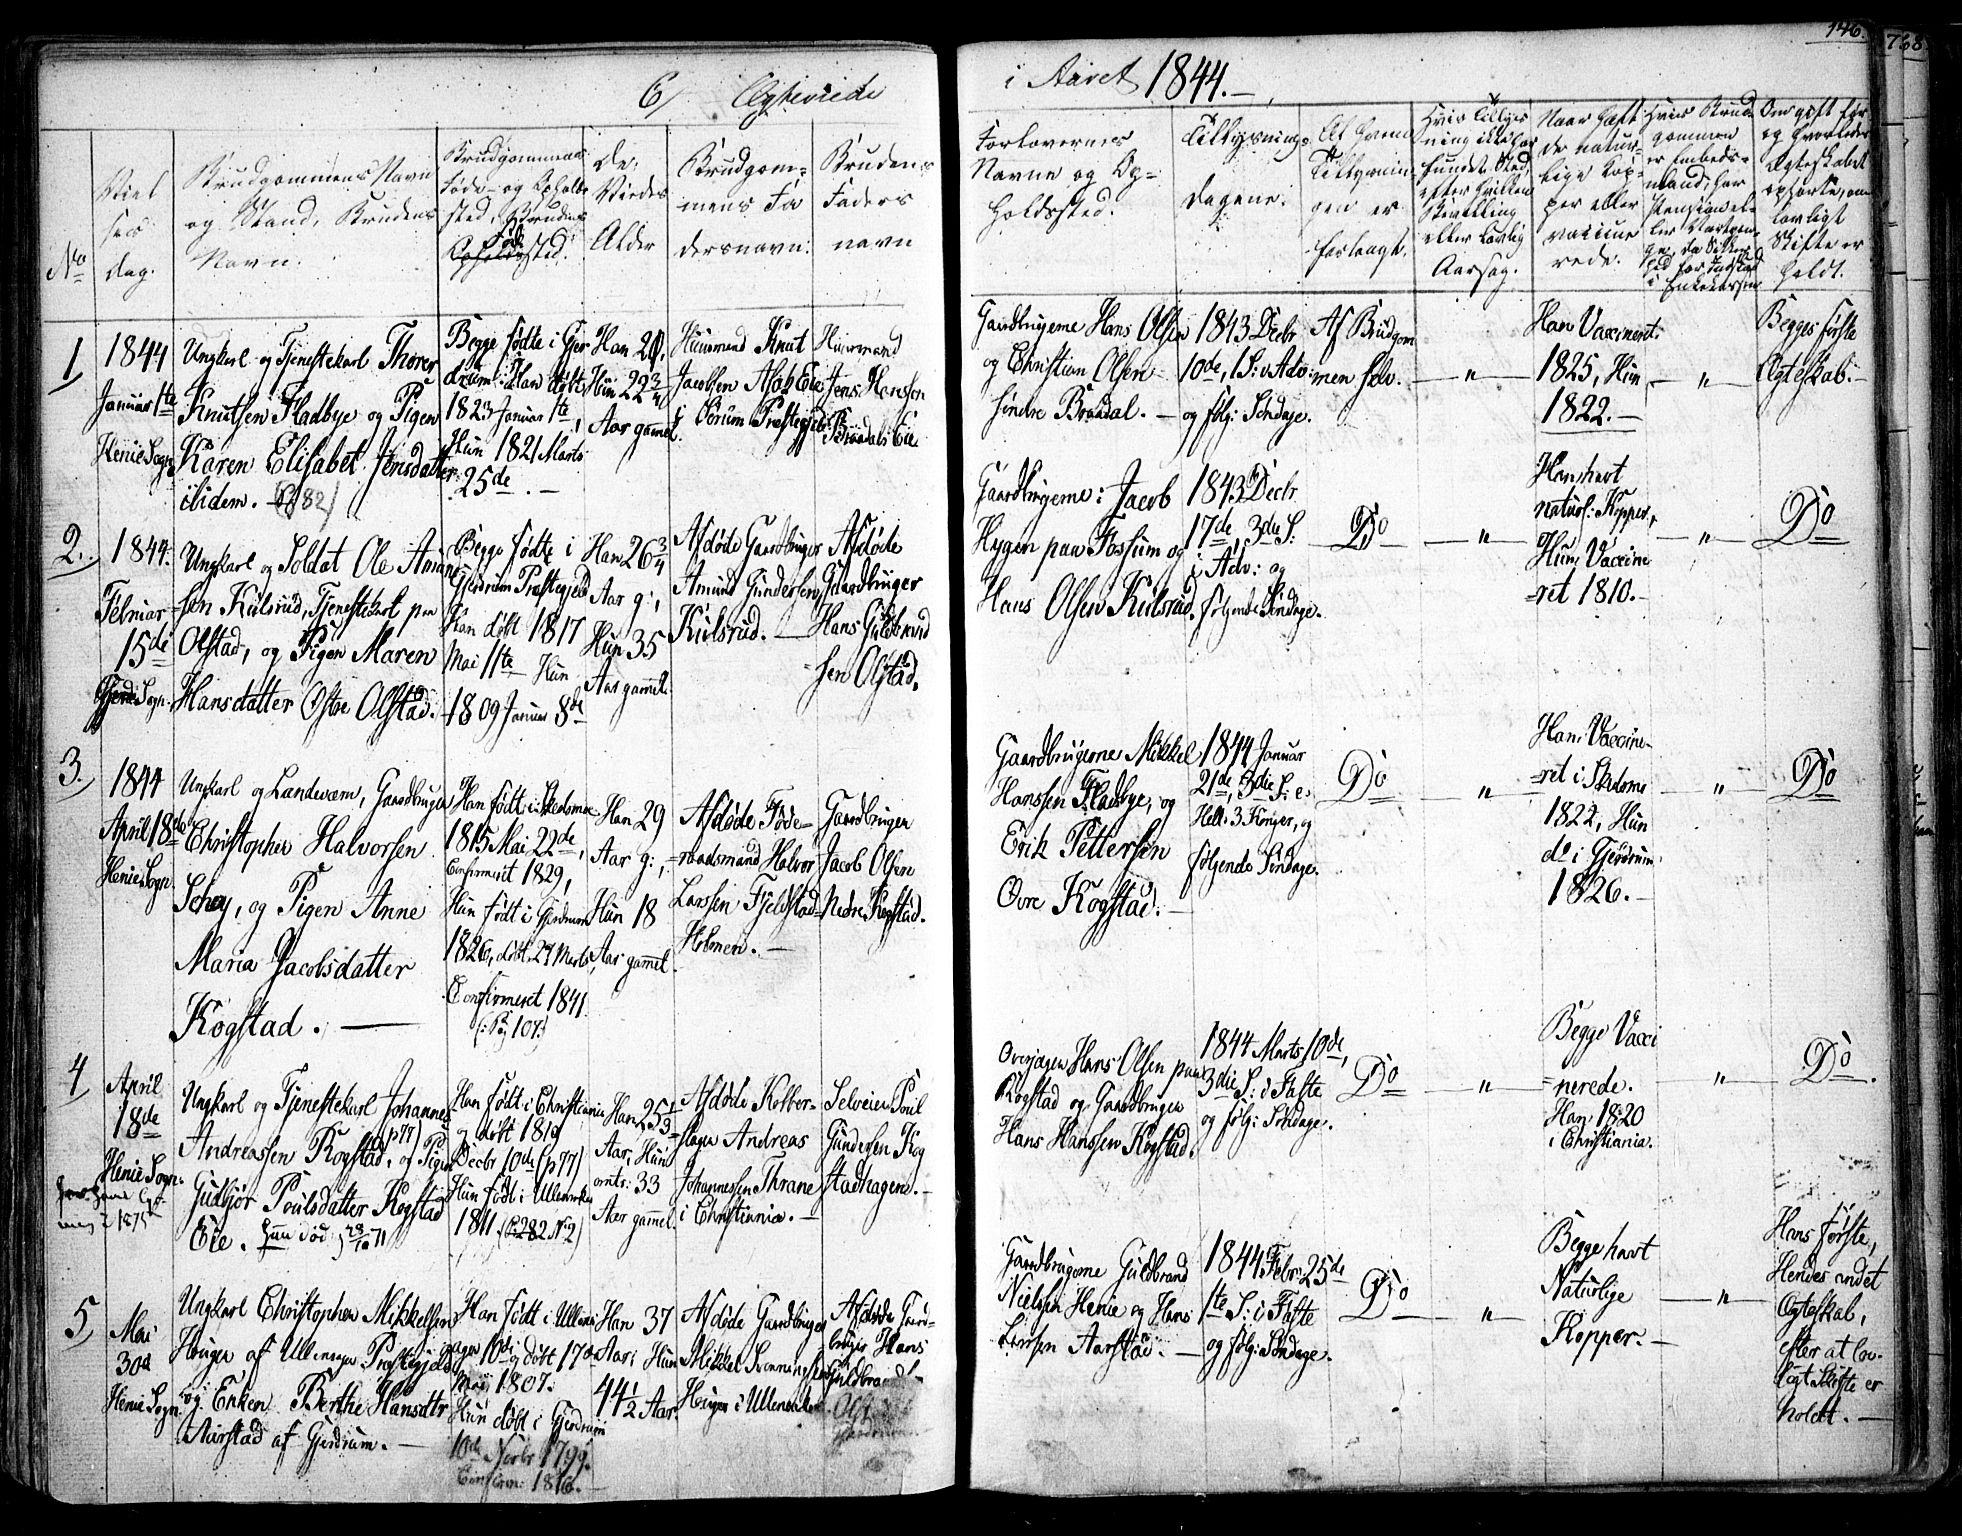 6, Egteviede
i Aaret 1844.
146.
768
No
Viel
ses
dag.
Brudgommens Navn
og Stand, Brudens
Navn.
Brudgommens
Føde- og Opholds
sted, Brudens
Føde
Opholdssted.
De
Viedes
Alder
Brudgom-
mens Fa
dersnavn:
Brudens
Faders
navn
Forlovernes
Navne og Op-
holdssted.
Tillysnings-
dagene.
Af hvem
Tillysnin-
gen er
forlangt.
Hvis Tillys
ning ikke har
fundet Sted,
efter hvilken
Bevilling
eller lovlig
Aarsag.
Naar havt
de natur-
lige Kop-
per eller
vaccine
rede.
Hvis Brud
gommen
er Embeds-
mand, har
Pension
i Enkekassen
Om gift før
og hvorledes
Egteskabet
ophørte, om
lovligt
Skifte er
holdt.
1
1844
Januar 1te
Henie Sogn
Ungkarl og Tjenestekarl Thorer
Knutsen Fladbye og Pigen
Karen Elisabet Jensdatter
ibidem. (p 82)
Begge fødte i Gjer
drum: Han døbt
1823 Januar 1te,
Hun 1821 Marts
25de. -
Han 21,
Hun 22 3/4
Aar gamel.
Huusmand Knut
Jacobsen Eie
i Sørum Præstegjeld
Huusmand
Jens Hansen
Braadals Eie
Gaardbrugerne Hans Olsen
og Christian Olsen
søndre Braadal. -
1843 Decbr
10de, 1 S: i Adv:
og følg: Søndage.
Af Brudgom
men selv.
- " -
Han Vaccineret
1825, Hun
1822. -
- " -
Begges første
Egteskab. -
2.
1844.
Februar
15de
Gjerd: Sogn.
Ungkarl og Soldat Ole Amund-
sen Kulsrud, Tjenestekarl paa
Olstad, og Pigen Maren
Hansdatter Østre Olstad.
Begge fødte i
Gjerdrum Præstegjeld
Han døbt 1817
Mai 11te Hun
1809 Januar 8de
Han 26 3/4
Aar g:,
Hun 35
Aar gamel.
Afdøde Gaardbruger
Amund Gundersen
Kulsrud. -
Afdøde
Gaardbruger
Hans Guldbrand
sen Olstad.
Gaardbrugerne: Jacob
Hygen paa Fossum og
Hans Olsen Kulsrud.
1843 Decbr
17de, 3die S:
i Adv: og
følgende Søndage.
Do
- " -
Han havt
naturl: Kopper,
Hun, Vaccine
ret 1810. -
- " -
Do
3.
1844
April 18de
Henie Sogn.
Ungkarl og Landværn, Gaardbruger
Christopher Halvorsen
Schøy, og Pigen Anne
Maria Jacobsdatter
Kogstad. -
Han født i Skedsmoe
1815 Mai 22de,
Confirmeret 1829,
Hun født i Gjerdrum
1826, døbt 27 Marts,
Confirmeret 1841
(: Pag 107:)
Han 29
Aar g:,
Hun 18
Aar gamel.
Afdøde Føde-
raadsmand Halvor
Larssen Fjeldstad-
Holmen. -
Gaardbruger
Jacob Olsen
Nedre Kogstad.
Gaardbrugerne Mikkel
Hanssen Fladbye, og
Erik Pettersen
Øvre Kogstad. -
1844 Januar
21de, 3die S: e.
Hell: 3 Konger, og
følgende Søndage.
Do
- " -
Han: Vaccine-
ret i Skedsmo
1822, Hun
do i Gjerdrum
1826. -
- " -
Do
4
April
18de
Henie Sogn.
1875
Ungkarl og Tjenestekarl Johannes
Andreassen Kogstad, (p 77) og Pigen
Gudbjør Poulsdatter Kogstad
Eie. Hun død 28/10 71
Han født i Christiania
og døbt 1818
Decbr 10de (p 77)
Hun født i Ullensaker
1811. (P 282 No 2)
Han 25 1/3
Aar, Hun
omtr: 33
Aar gamel.
Afdøde Kobber-
slager Andreas
Johannessen Thrane
i Christiania. -
Selveier Poul
Gundersen Kog
stadhagen. -
Hans Olsen paa
Kogstad og Gaardbruger
Hans Hanssen Kogstad.
1844 Marts 10de,
3die S: i Faste
og følg: Søndage.
Do
- " -
Begge Vacci
nerede.
Han 1820
i Christiania.
"
Do.
5
Mai
30de
Henie Sogn.
Ungkarl Christopher Mikkelsen
Hougen af Ullensager Præstegjeld
og Enken Berthe Hansdtr
Aarstad af Gjerdrum. -
Han født i Ullens
ager 10de og døbt 17de
Maj 1807.
Hun døbt i Gjerdrum
10de Novbr 1799.
Confirm: 1816. -
Han 37
Aar, Hun
44 1/2 Aar.
Afdøde Gaardbruger
Mikkel Svenningsen
Hougen i Ullensaker
Afdøde Gaard-
bruger Hans
Guldbrands
Gaardbrugerne Guldbrand
Nielsen Henie og Hans
Larsen Aarstad. -
1844 Febr: 25de
1te S: i Faste
og følg: Søndage.
Do
"
Begge havt
Naturlige
Kopper. -
- " -
Hans første,
Hendes andet
Egteskab,
efter at lov-
ligt Skifte er
holdt. -